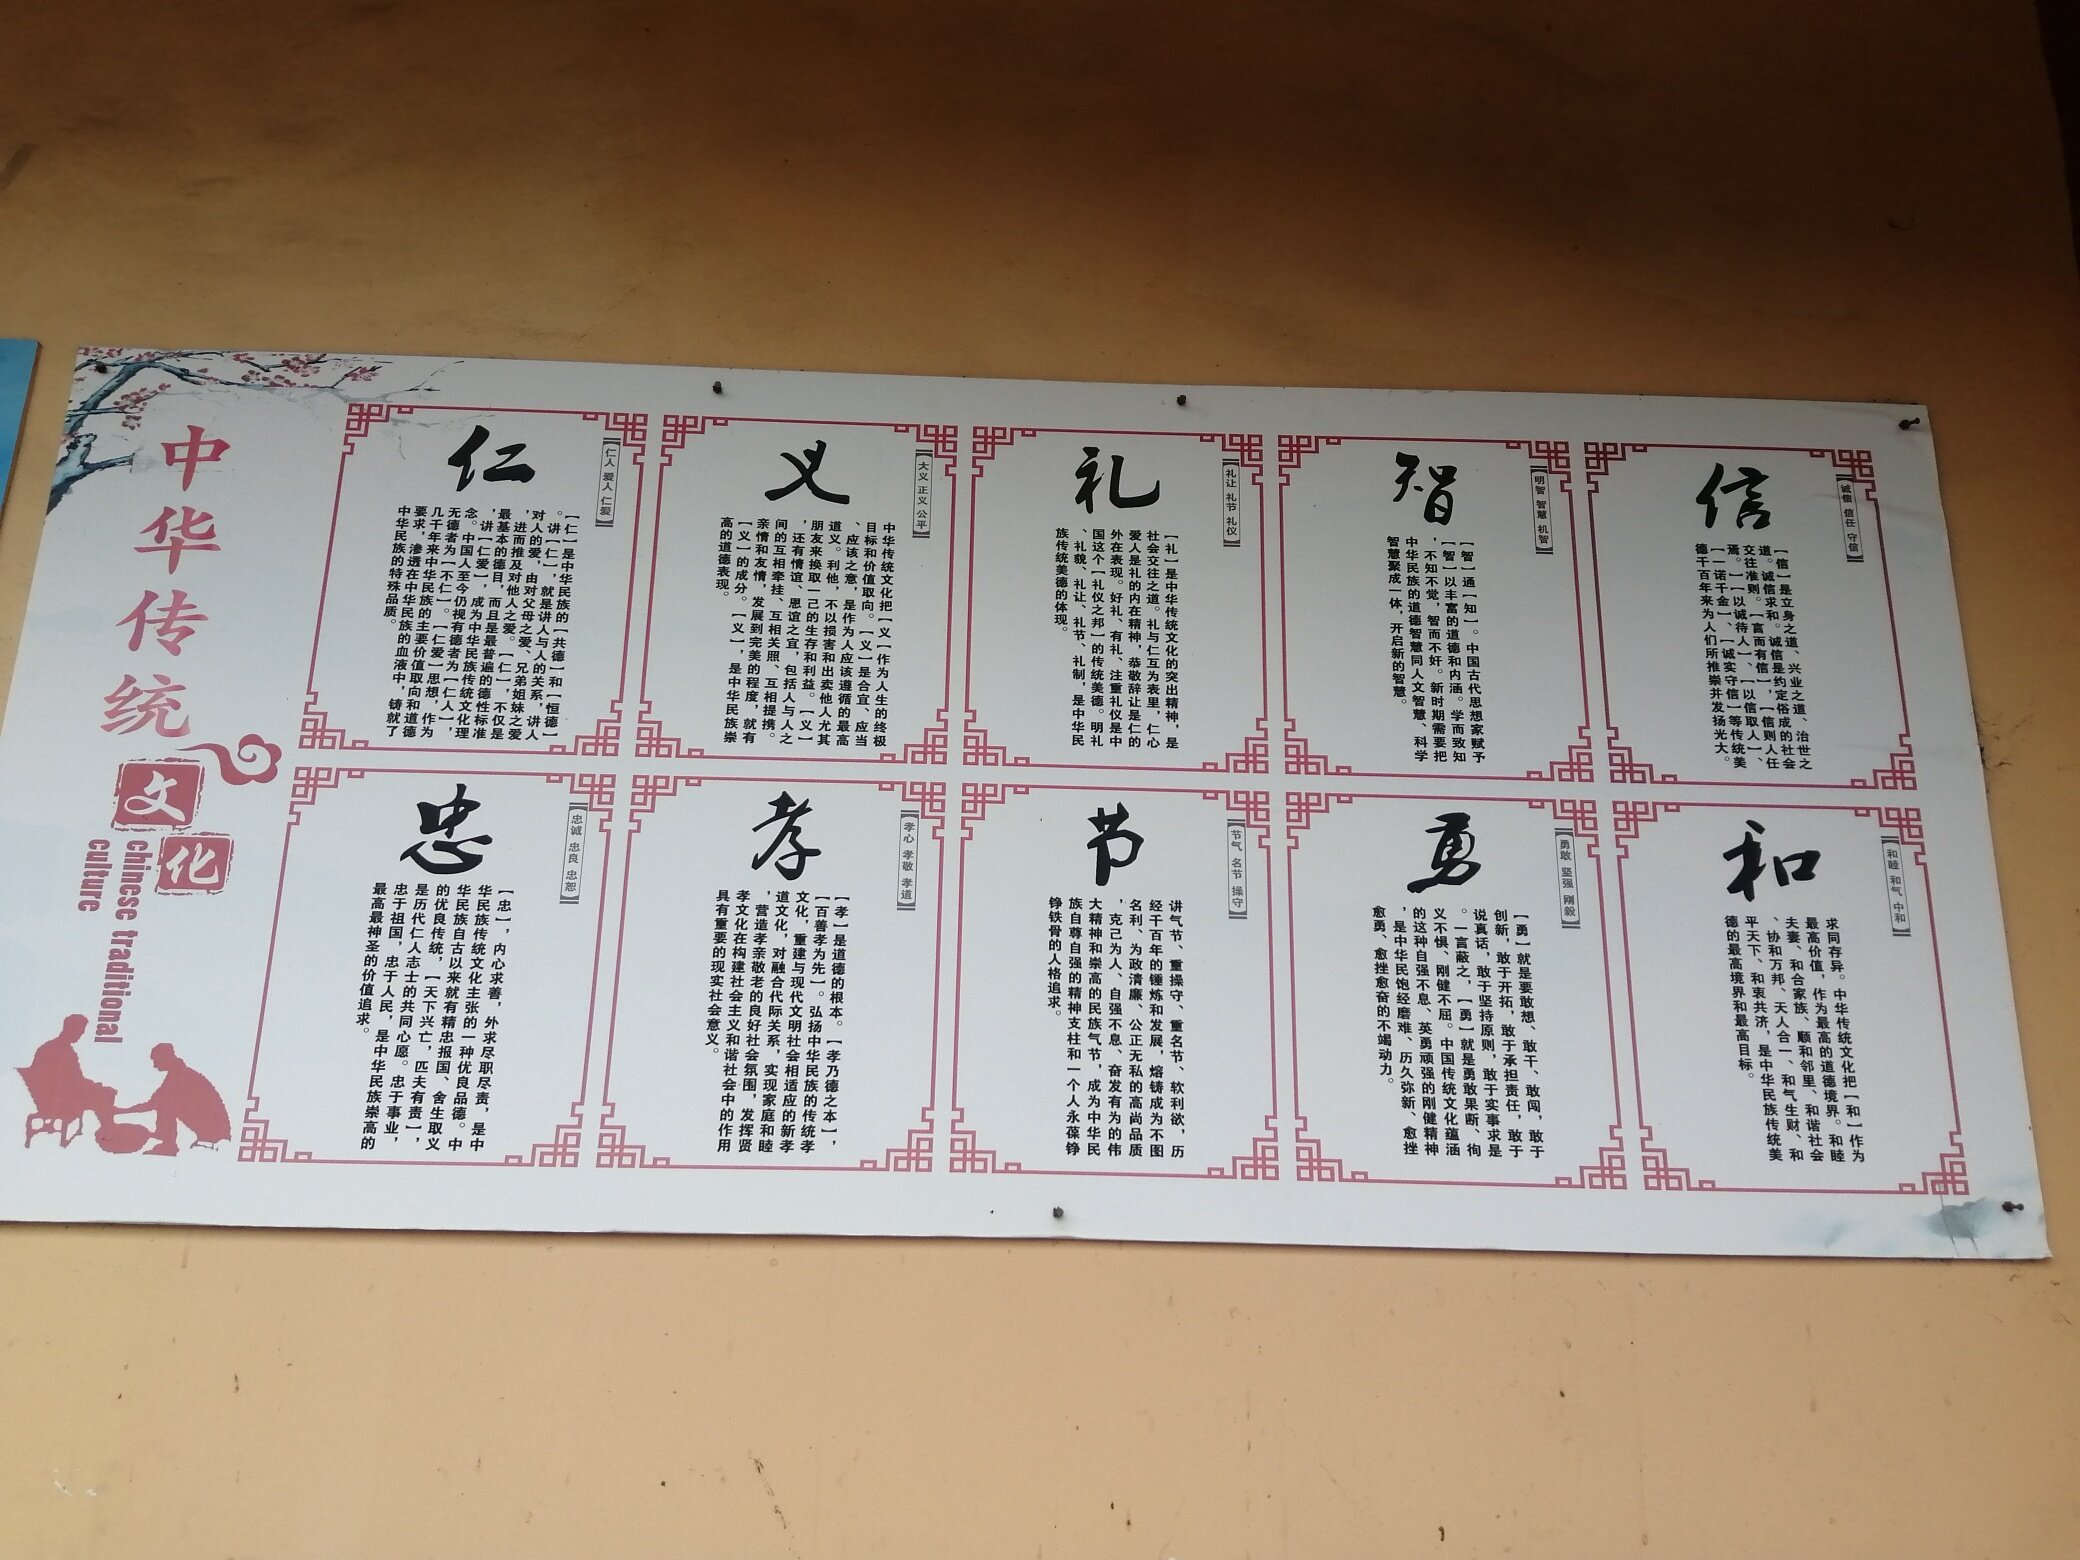 中华传统
文化
chinese traditional
culture
仁
仁人 爱人 仁爱
【仁】是中华民族的【共德】和【恒德】
。讲【仁】，就是讲人与人的关系，讲人
对人的爱，由对父母之爱、兄弟姐妹之爱
，进而推及对他人之爱。【仁】，不仅是
最基本的德目，而且是最普遍的德性标准
，讲【仁爱】，成为中华民族传统文化理
念。中国人至今仍视有德者为【仁人】，
无德者为【不仁】。【仁爱】思想，作为
几千年来中华民族的主要价值取向和道德
要求，渗透在中华民族的血液中，铸就了
中华民族的特殊品质。
义
大义 正义 公平
中华传统文化把【义】作为人生的终极
目标和价值取向。【义】是合宜、应当
、应该之意，是作为人应该遵循的最高
道义。利他，不以损害和出卖他人尤其
朋友来换取一己的生存和利益。【义】
，还有情谊、恩谊之宜，包括人与人之
间的互相牵挂、互相关照、互相提携。
亲情和友情，发展到完美的程度，就有
【义】的成分。【义】，是中华民族崇
高的道德表现。
礼
礼让 礼节 礼仪
【礼】是中华传统文化的突出精神，是
社会交往之道。礼与仁互为表里，仁心
爱人是礼的内在精神，恭敬辞让是仁的
外在表现。好礼、有礼、注重礼仪是中
国这个【礼仪之邦】的传统美德。明礼
、礼貌、礼让、礼节、礼制，是中华民
族传统美德的体现。
智
明智 智慧 机智
【智】通【知】。中国古代思想家赋予
【智】以丰富的道德和内涵。学而致知
，不知不觉，智而不奸。新时期需要把
中华民族的道德智慧同人文智慧、科学
智慧聚成一体，开启新的智慧。
信
诚信 信任 守信
【信】是立身之道、兴业之道、治世之
道。诚信求和。诚信是约定俗成的社会
交往准则。【言而有信】，【信则人任
焉。】【以诚待人】、【以信取人】、
【一诺千金】、【诚实守信】等传统美
德千百年来为人们所推崇并发扬光大。
忠
忠诚 忠良 忠恕
【忠】，内心求善，外求尽职尽责，是中
华民族传统文化主张的一种优良品德。中
华民族自古以来就有精忠报国、舍生取义
的优良传统，【天下兴亡，匹夫有责】，
是历代仁人志士的共同心愿。忠于事业，
忠于祖国，忠于人民，是中华民族崇高的
最高最神圣的价值追求。
孝
孝心 孝敬 孝道
【孝】是道德的根本。【孝乃德之本】，
【百善孝为先】。弘扬中华民族的传统孝
文化，重建与现代文明社会相适应的新孝
道文化，对融合代际关系，实现家庭和睦
，营造孝亲敬老的良好社会氛围，发挥贤
孝文化在构建社会主义和谐社会中的作用
具有重要的现实社会意义。
节
节气 名节 操守
讲气节、重操守、重名节、软利欲，历
经千百年的锤炼和发展，熔铸成为不图
名利、为政清廉、公正无私的高尚品质
，克己为人、自强不息、奋发有为的伟
大精神和崇高的民族气节，成为中华民
族自尊自强的精神支柱和一个人永葆铮
铮铁骨的人格追求。
勇
勇敢 坚强 刚毅
【勇】就是要敢想、敢干、敢闯，敢于
创新，敢于开拓，敢于承担责任，敢于
说真话，敢于坚持原则，敢于实事求是
。一言蔽之，【勇】就是勇敢果断、徇
义不惧、刚健不屈。中国传统文化蕴涵
的这种自强不息、英勇顽强的刚健精神
，是中华民饱经磨难、历久弥新、愈挫
愈勇、愈挫愈奋的不竭动力。
和
和睦 和气 中和
求同存异。中华传统文化把【和】作为
最高价值，作为最高的道德境界。和睦
夫妻、和合家族、顺和邻里、和谐社会
、协和万邦、天人合一、和气生财、和
平天下、和衷共济，是中华民族传统美
德的最高境界和最高目标。